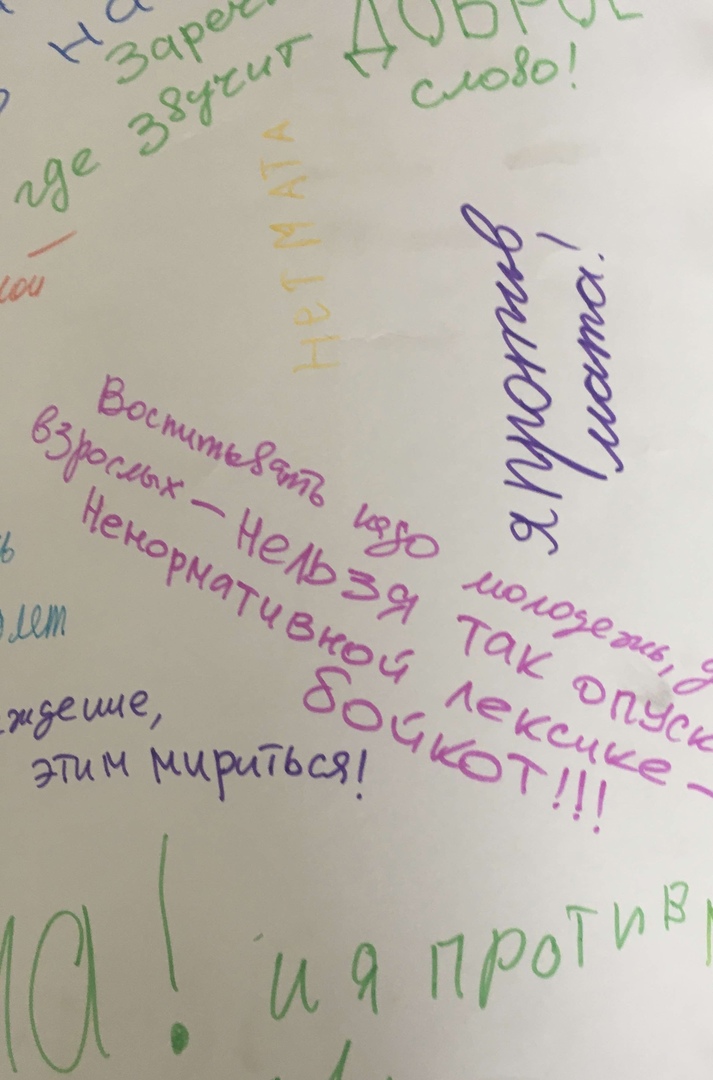 на
ДОБРОЕ
где звучит
слово!
НЕТ МАТА
я против
мата!
Воспитывать надо молодежь,
взрослых – Нельзя так опуск
Ненормативной лексике –
бойкот!!!
лет
ждение,
этим мириться!
на!
и я против